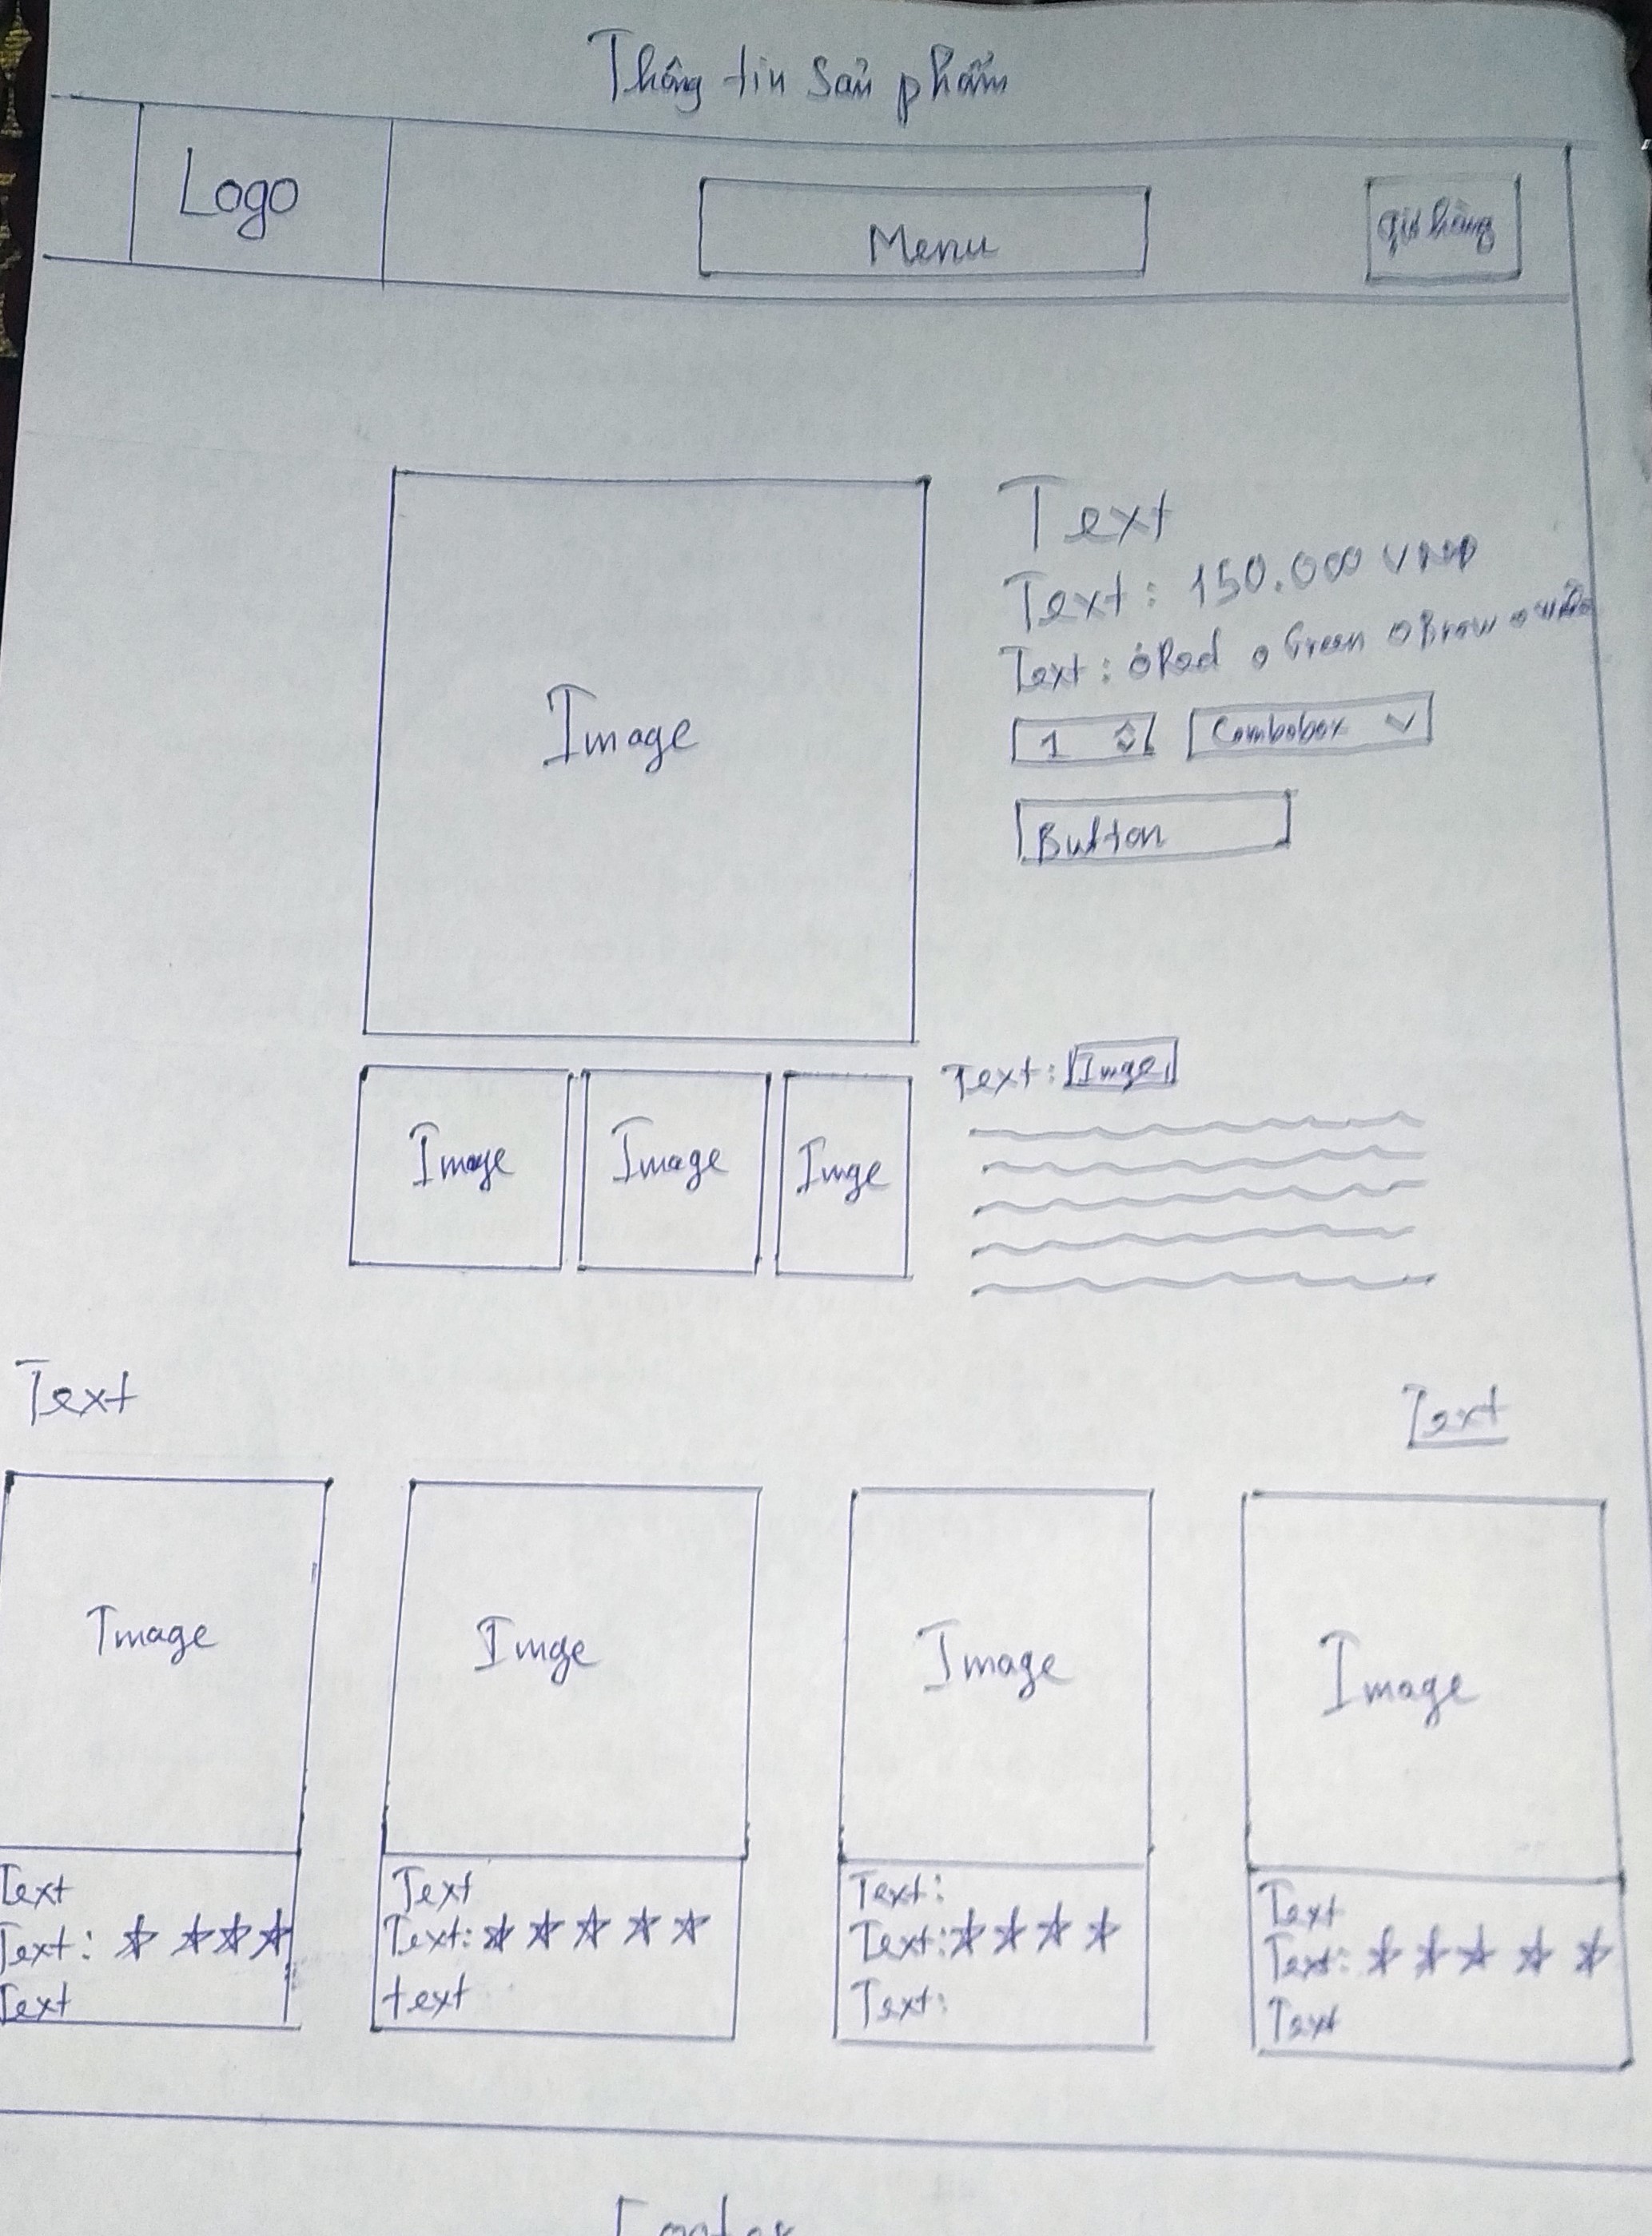 Thông tin Sản phẩm
Logo
Menu
giỏ hàng
Image
Text
Text: 150.000 VNĐ
Text: Red Green Brow
1
Combobox
Button
Image
Image
Imge
Text: Imge
Text
Text
Image
Imge
Image
Image
Text
Text:
Text
Text
Text:
text
Text:
Text:
Text:
Text
Text:
Text
Footer